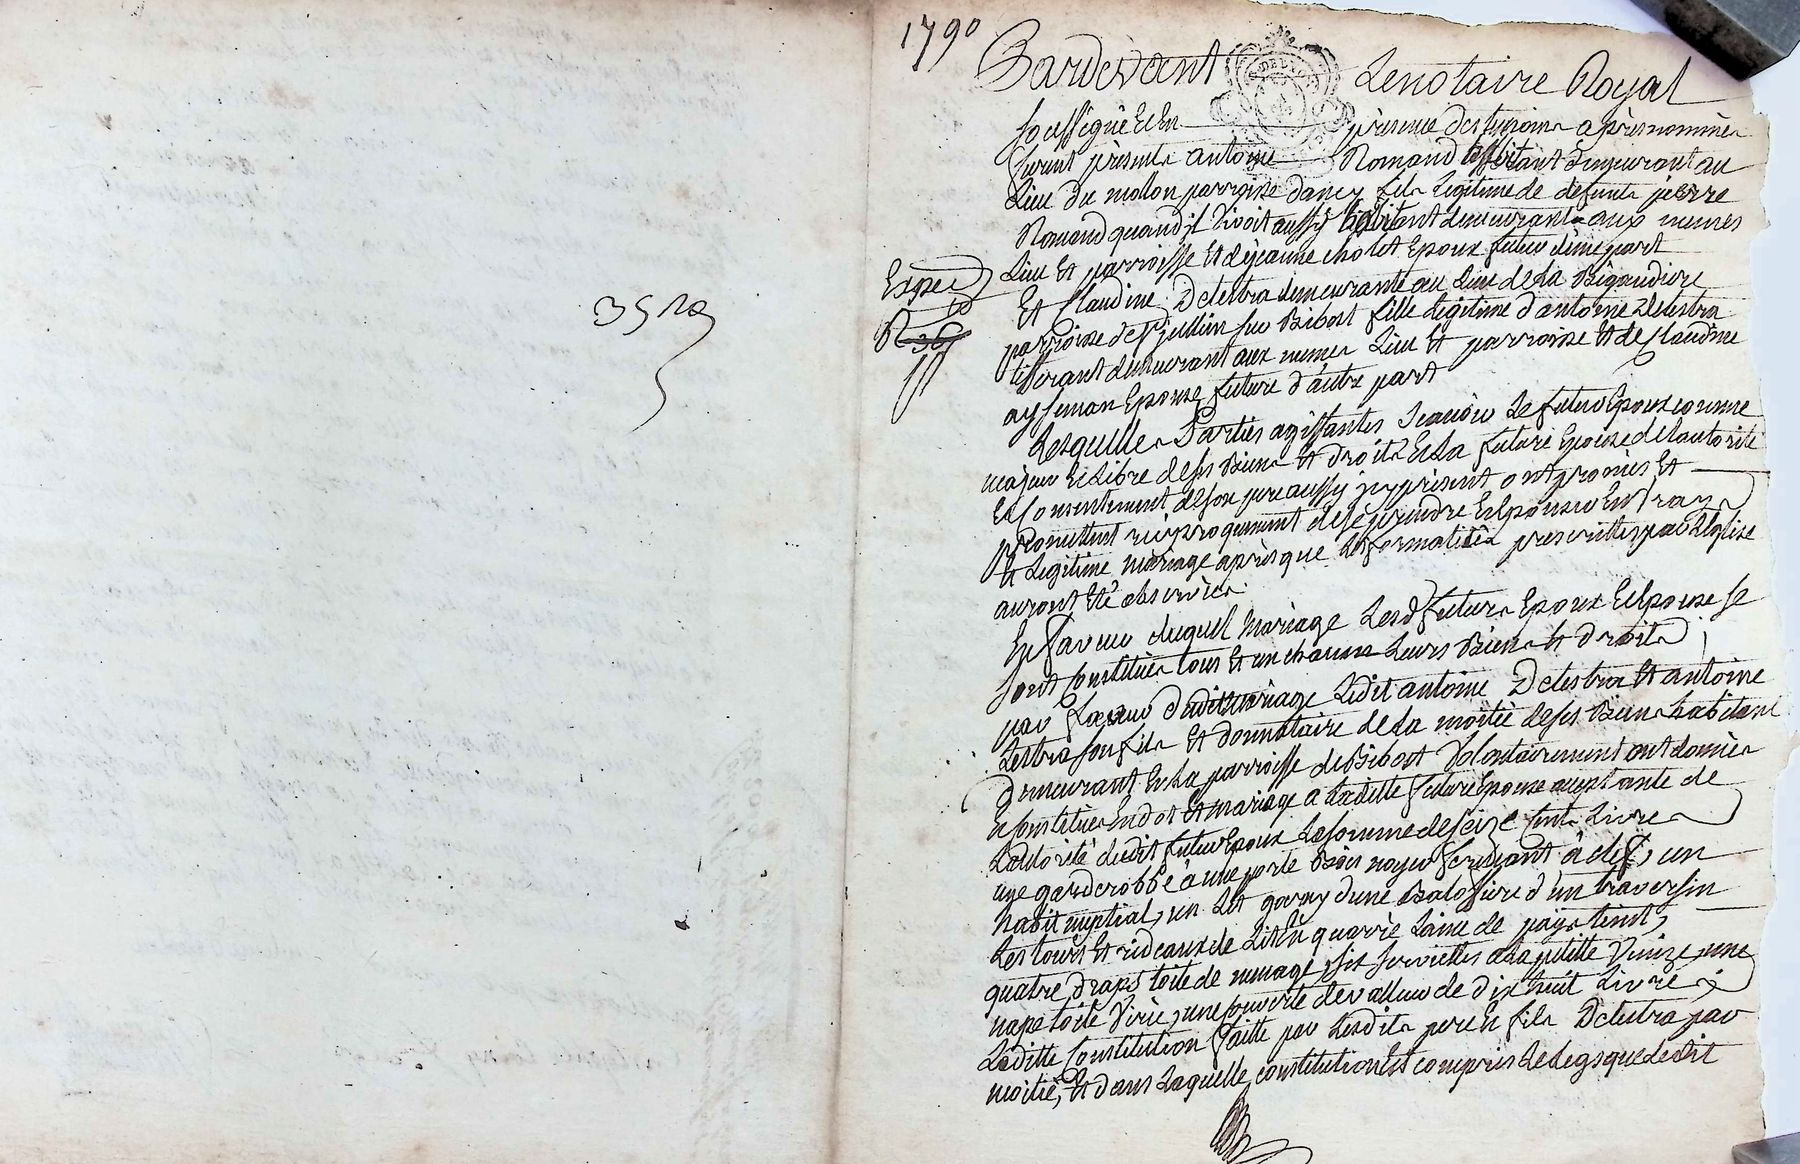 1790
Pardevant Le notaire Royal
soussigné Et En présence des temoins après nommés
furent présents antoine Romand habitant demeurant au
Lieu du mollon parroisse dancy fils Legitime de défunts pierre
Romand quand il vivoit aussy habitant demeurant aux memes
Lieu Et parroisse Et de jeanne cholet Epoux futur d'une part
Et Claudine Delestra demeurante au Lieu de La Rigaudiere
parroisse de st jullien sur Bibost fille Legitime d'antoine Delestra
tisserant demeurant aux memes Lieu Et parroisse Et de Claudine
Epouse future d'autre part
Lesquelles Parties agissantes scavoir Le futur Epoux comme
majeur Et Libre de ses Biens Et droits Et La future Epouse de L'autorité
Et Consentement de son pere aussy jcy présent ont promis Et
promettent reciproquement de se prendre Et Epouser En vray
Et Legitime mariage après que Les formalités prescrittes par L'église
auront été observées
En faveur duquel mariage Lesd futurs Epoux Et Epouse se
sont Constitués tous Et un chacuns Leurs Biens Et droits ;
par faveur dudit mariage Ledit antoine Delestra Et antoine
Lestra son fils Et donnataire de La moitié de ses Biens habitant
demeurant En La parroisse de Bibost Volontairement ont donnés
Et Constitués En dot Et mariage a Laditte future Epouse acceptante de
L'autorité dudit futur Epoux La somme de seize cents Livres
une garderobbe à une porte Bois noyer fermant à clef, un
habit nuptial, un Lit garny d'une Balossiere d'un traversin
Les tours Et rideaux de Lit En quarré Laine de pays teint,
quatre draps toile de menage, six serviettes a La petitte Venize, une
nape toile Virie, une couverte de valleur de dix huit Livres
Laditte Constitution faitte par Lesdits pere Et fils Delestra par
moitié, Et dans Laquelle constitution Est compris Le Legs que Ledit
Exped
35